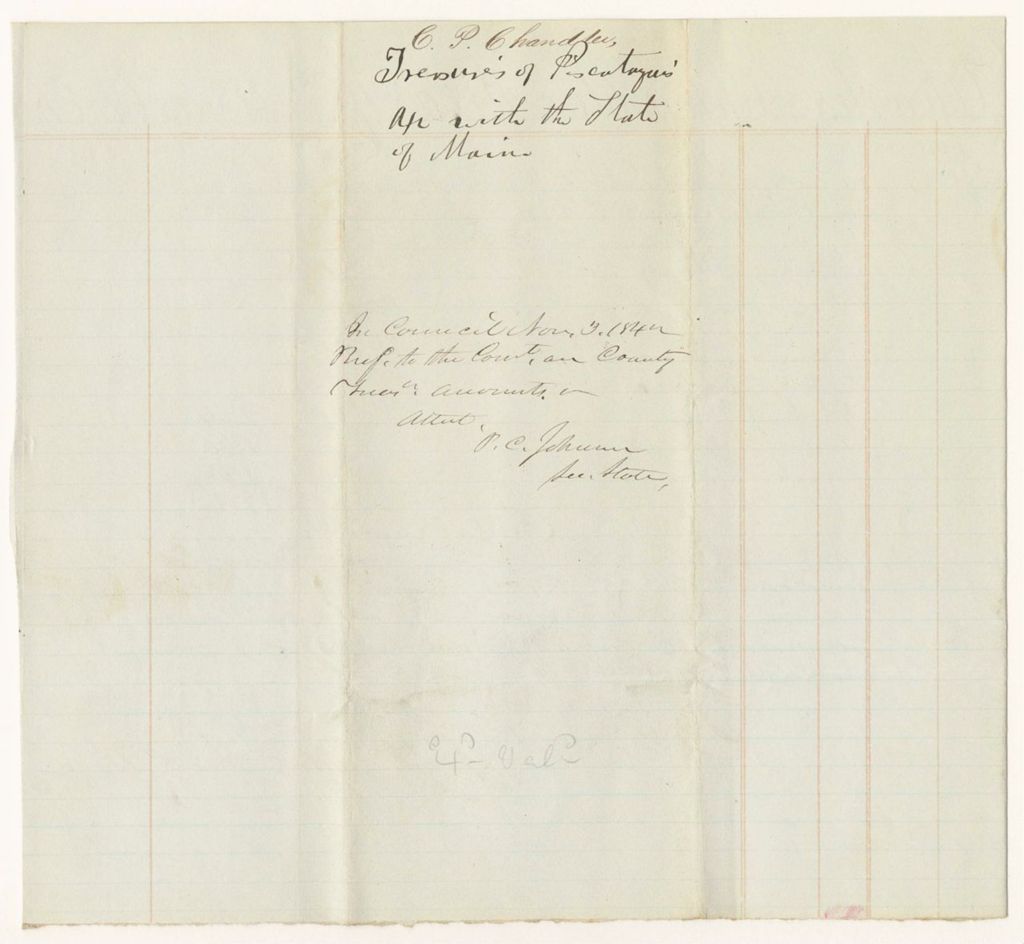 C. P. Chandler,
Treasurer's of Piscataquis
a/c with the State
of Maine
In Council Nov. 3. 184
Ref. to the Comt. on County
Treasrs. accounts.
Attest,
P. C. Johnson
Sec. State,